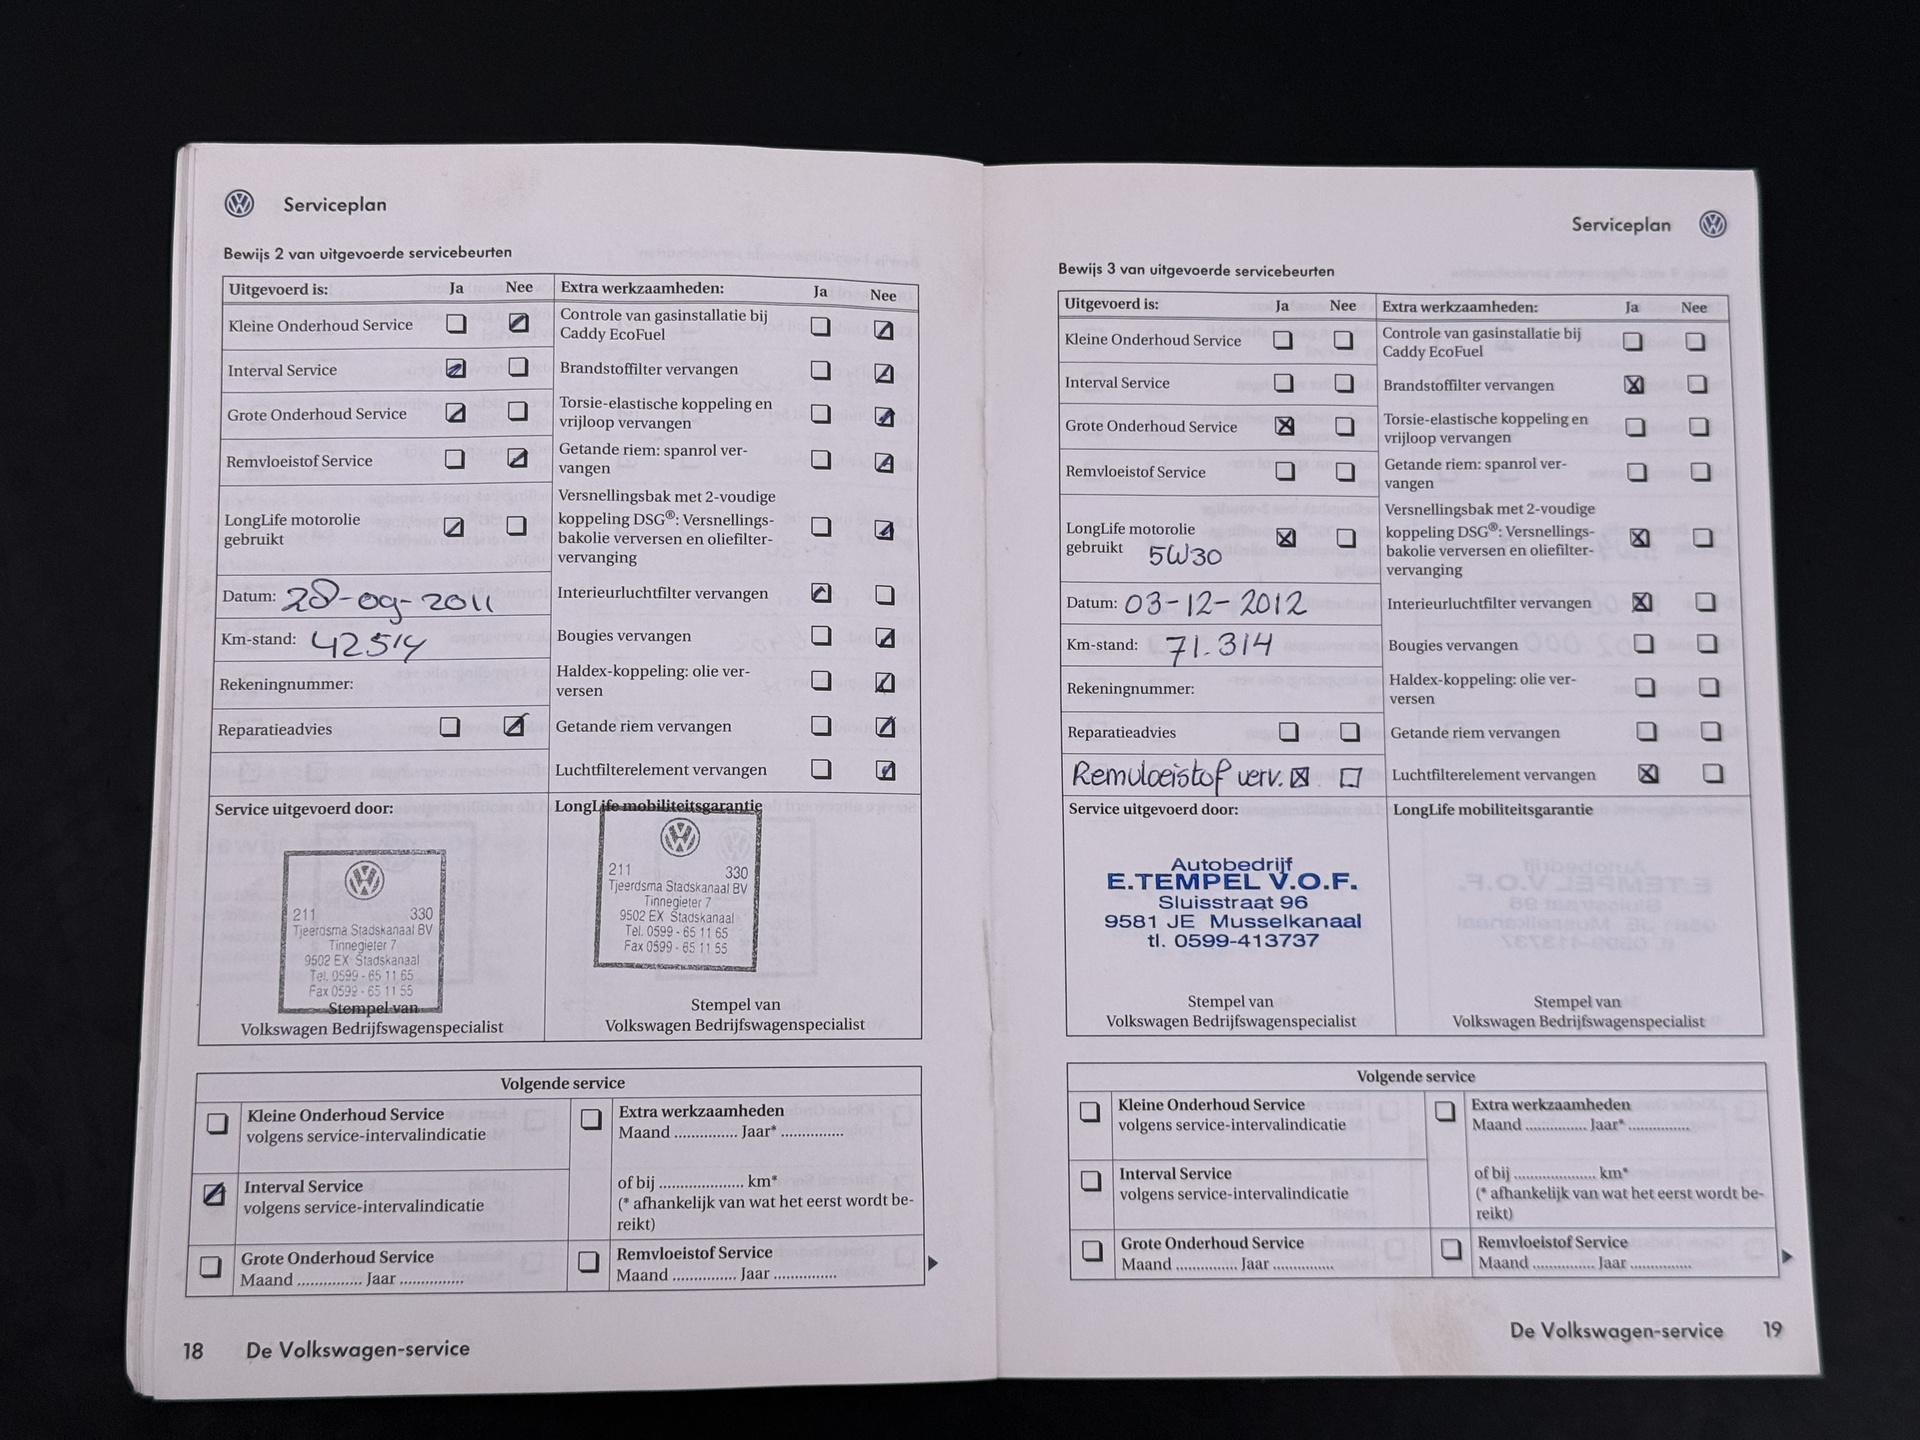 Serviceplan
Bewijs 2 van uitgevoerde servicebeurten
Uitgevoerd is: Ja Nee
Kleine Onderhoud Service
Interval Service
Grote Onderhoud Service
Remvloeistof Service
LongLife motorolie
gebruikt
Datum: 28-09-2011
Km-stand: 42514
Rekeningnummer:
Reparatieadvies
Extra werkzaamheden: Ja Nee
Controle van gasinstallatie bij
Caddy EcoFuel
Brandstoffilter vervangen
Torsie-elastische koppeling en
vrijloop vervangen
Getande riem: spanrol ver-
vangen
Versnellingsbak met 2-voudige
koppeling DSG®: Versnellings-
bakolie verversen en oliefilter-
vervanging
Interieurluchtfilter vervangen
Bougies vervangen
Haldex-koppeling: olie ver-
versen
Getande riem vervangen
Luchtfilterelement vervangen
Service uitgevoerd door:
211 330
Tjeerdsma Stadskanaal BV
Tinnegieter 7
9502 EX Stadskanaal
Tel. 0599 - 65 11 65
Fax 0599 - 65 11 55
Stempel van
Volkswagen Bedrijfswagenspecialist
LongLife mobiliteitsgarantie
211 330
Tjeerdsma Stadskanaal BV
Tinnegieter 7
9502 EX Stadskanaal
Tel. 0599 - 65 11 65
Fax 0599 - 65 11 55
Stempel van
Volkswagen Bedrijfswagenspecialist
Volgende service
Kleine Onderhoud Service
volgens service-intervalindicatie
Interval Service
volgens service-intervalindicatie
Grote Onderhoud Service
Maand ............... Jaar ...............
Extra werkzaamheden
Maand ............... Jaar* ...............
of bij .................... km*
(* afhankelijk van wat het eerst wordt be-
reikt)
Remvloeistof Service
Maand ............... Jaar ...............
18 De Volkswagen-service
Serviceplan
Bewijs 3 van uitgevoerde servicebeurten
Uitgevoerd is: Ja Nee
Kleine Onderhoud Service
Interval Service
Grote Onderhoud Service
Remvloeistof Service
LongLife motorolie
gebruikt 5W30
Datum: 03-12-2012
Km-stand: 71.314
Rekeningnummer:
Reparatieadvies
Remvloeistof verv.
Extra werkzaamheden: Ja Nee
Controle van gasinstallatie bij
Caddy EcoFuel
Brandstoffilter vervangen
Torsie-elastische koppeling en
vrijloop vervangen
Getande riem: spanrol ver-
vangen
Versnellingsbak met 2-voudige
koppeling DSG®: Versnellings-
bakolie verversen en oliefilter-
vervanging
Interieurluchtfilter vervangen
Bougies vervangen
Haldex-koppeling: olie ver-
versen
Getande riem vervangen
Luchtfilterelement vervangen
Service uitgevoerd door:
Autobedrijf
E.TEMPEL V.O.F.
Sluisstraat 96
9581 JE Musselkanaal
tl. 0599-413737
Stempel van
Volkswagen Bedrijfswagenspecialist
LongLife mobiliteitsgarantie
Stempel van
Volkswagen Bedrijfswagenspecialist
Volgende service
Kleine Onderhoud Service
volgens service-intervalindicatie
Interval Service
volgens service-intervalindicatie
Grote Onderhoud Service
Maand ............... Jaar ...............
Extra werkzaamheden
Maand ............... Jaar* ...............
of bij .................... km*
(* afhankelijk van wat het eerst wordt be-
reikt)
Remvloeistof Service
Maand ............... Jaar ...............
De Volkswagen-service 19